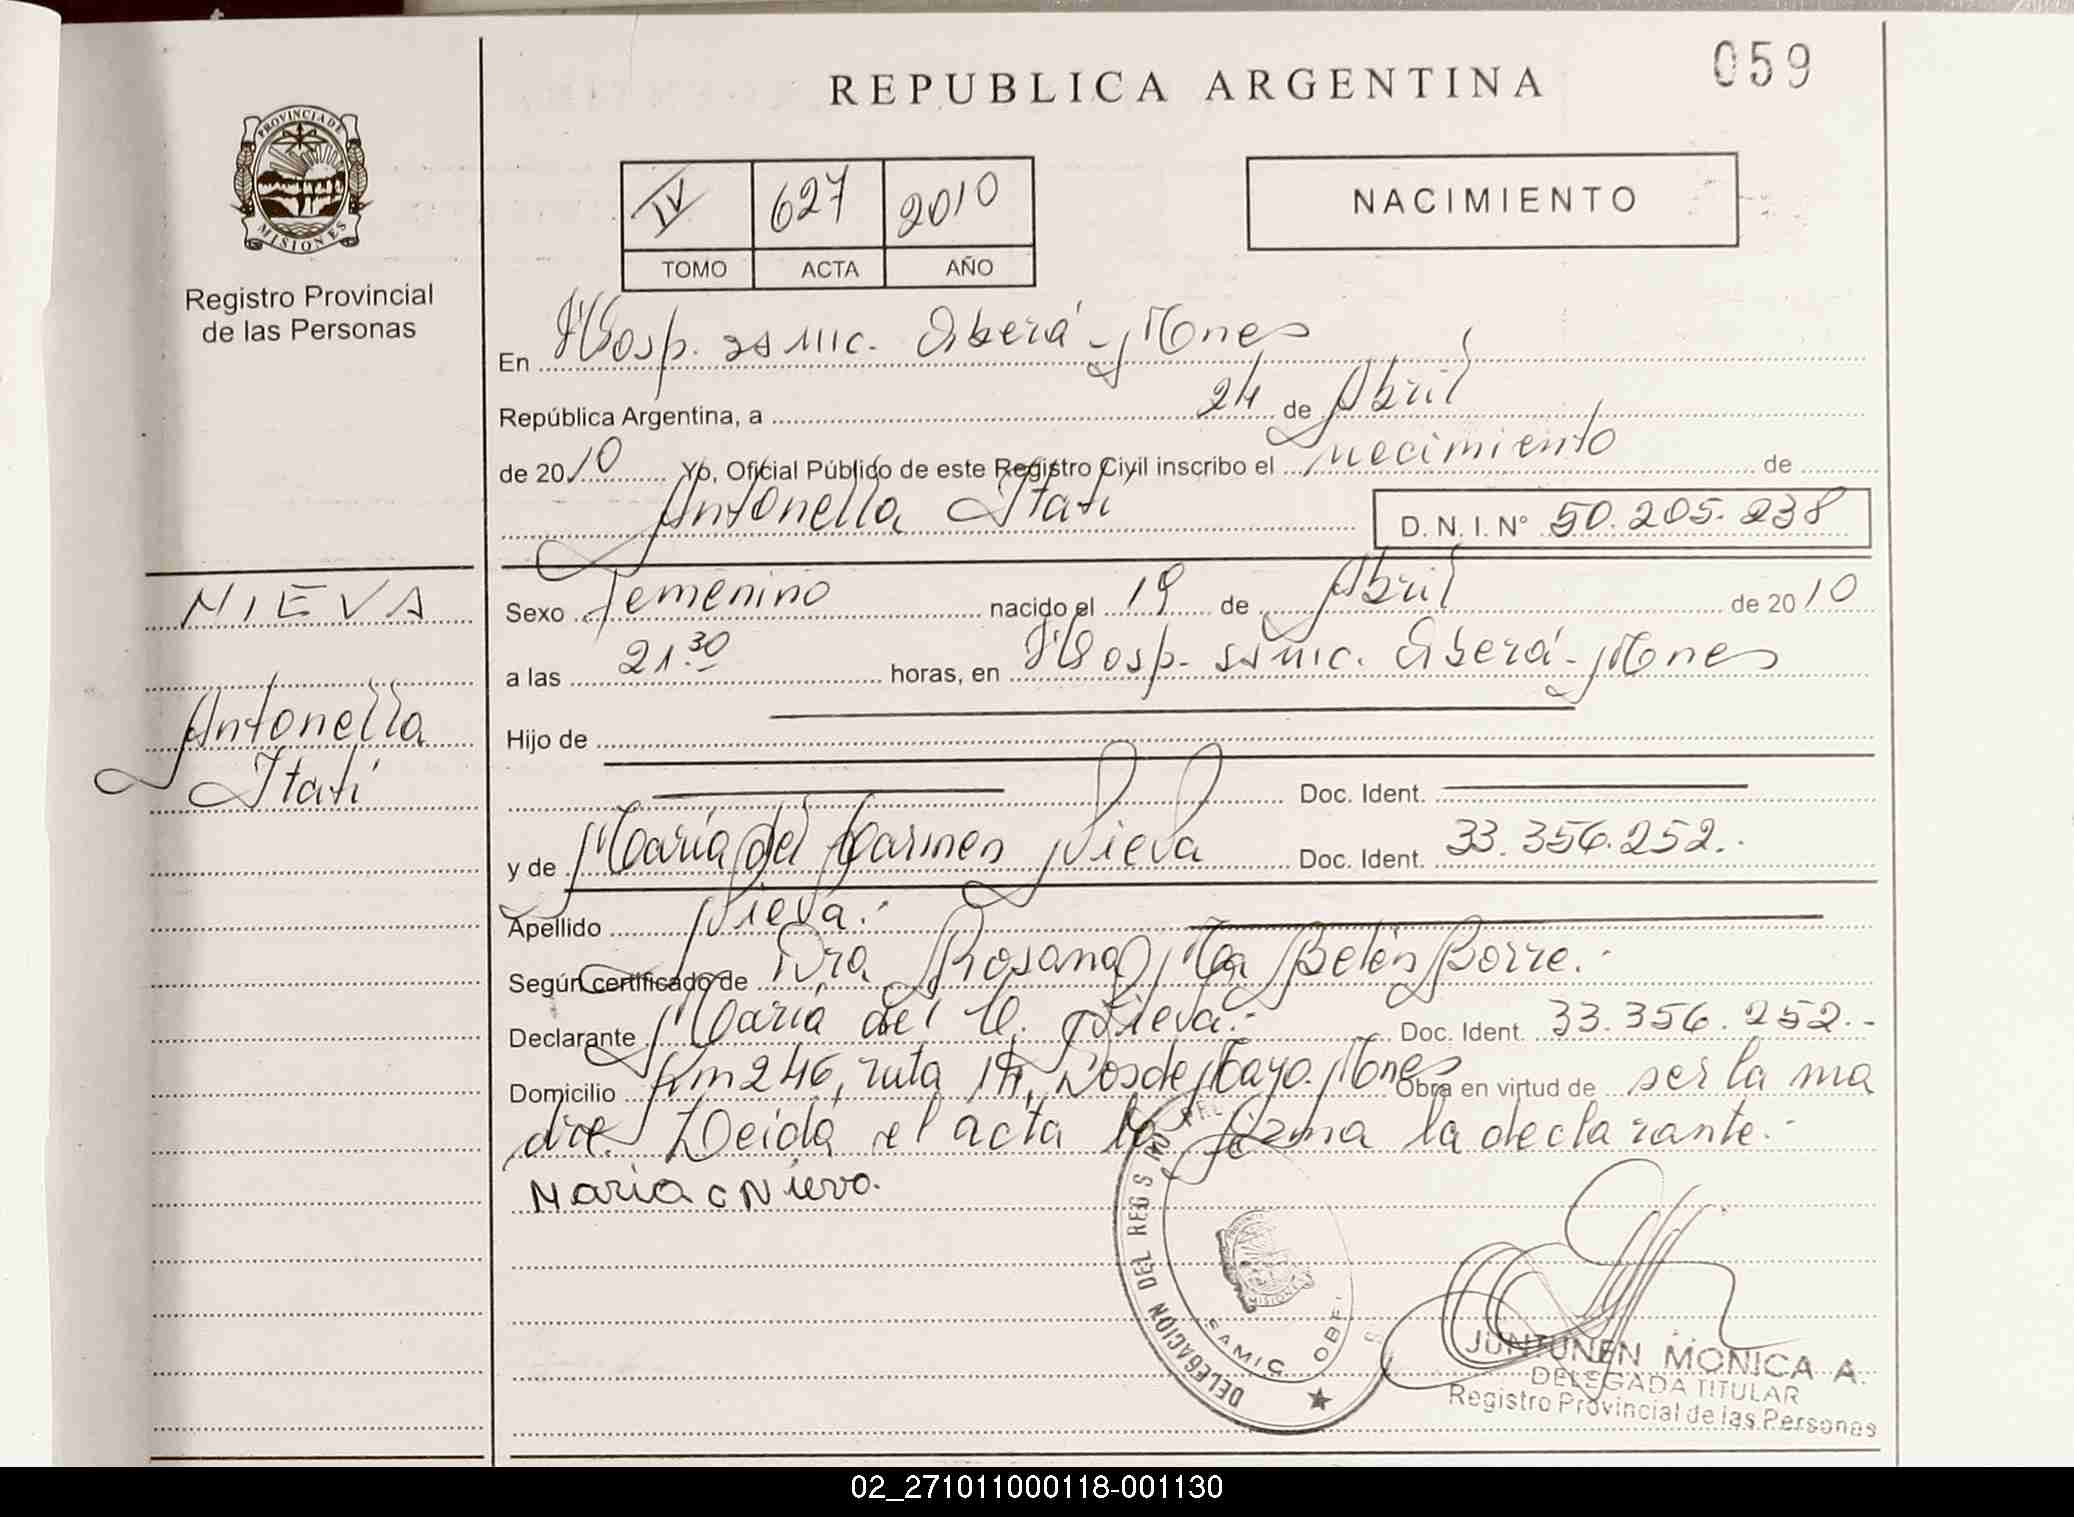 REPUBLICA ARGENTINA
059
PROVINCIA DE
MISIONES
Registro Provincial
de las Personas
IV 627 2010
TOMO ACTA AÑO
NACIMIENTO
En Hosp. samic. Oberá - Mnes
República Argentina, a 24 de Abril
de 2010 Yo, Oficial Público de este Registro Civil inscribo el nacimiento de
Antonella Itatí D. N. I. N° 50.205.238
NIEVA
Antonella
Itatí
Sexo femenino nacido el 19 de Abril de 2010
a las 21.30 horas, en Hosp. samic. Oberá - Mnes
Hijo de
Doc. Ident.
y de María del Carmen Nieva Doc. Ident. 33.356.252.-
Apellido Nieva.-
Según certificado de Dra Rosana Ma Belén Borre.-
Declarante María del C. Nieva.- Doc. Ident. 33.356.252.-
Domicilio Km 246, ruta 14, Dos de Mayo. Mnes Obra en virtud de ser la ma
dre. Leida el acta la firma la declarante.-
Maria C Nieva.
DELEGACION DEL REG
SAMIC OBE
MISIONES
JUNTUNEN MONICA A.
DELEGADA TITULAR
Registro Provincial de las Personas
02_271011000118-001130